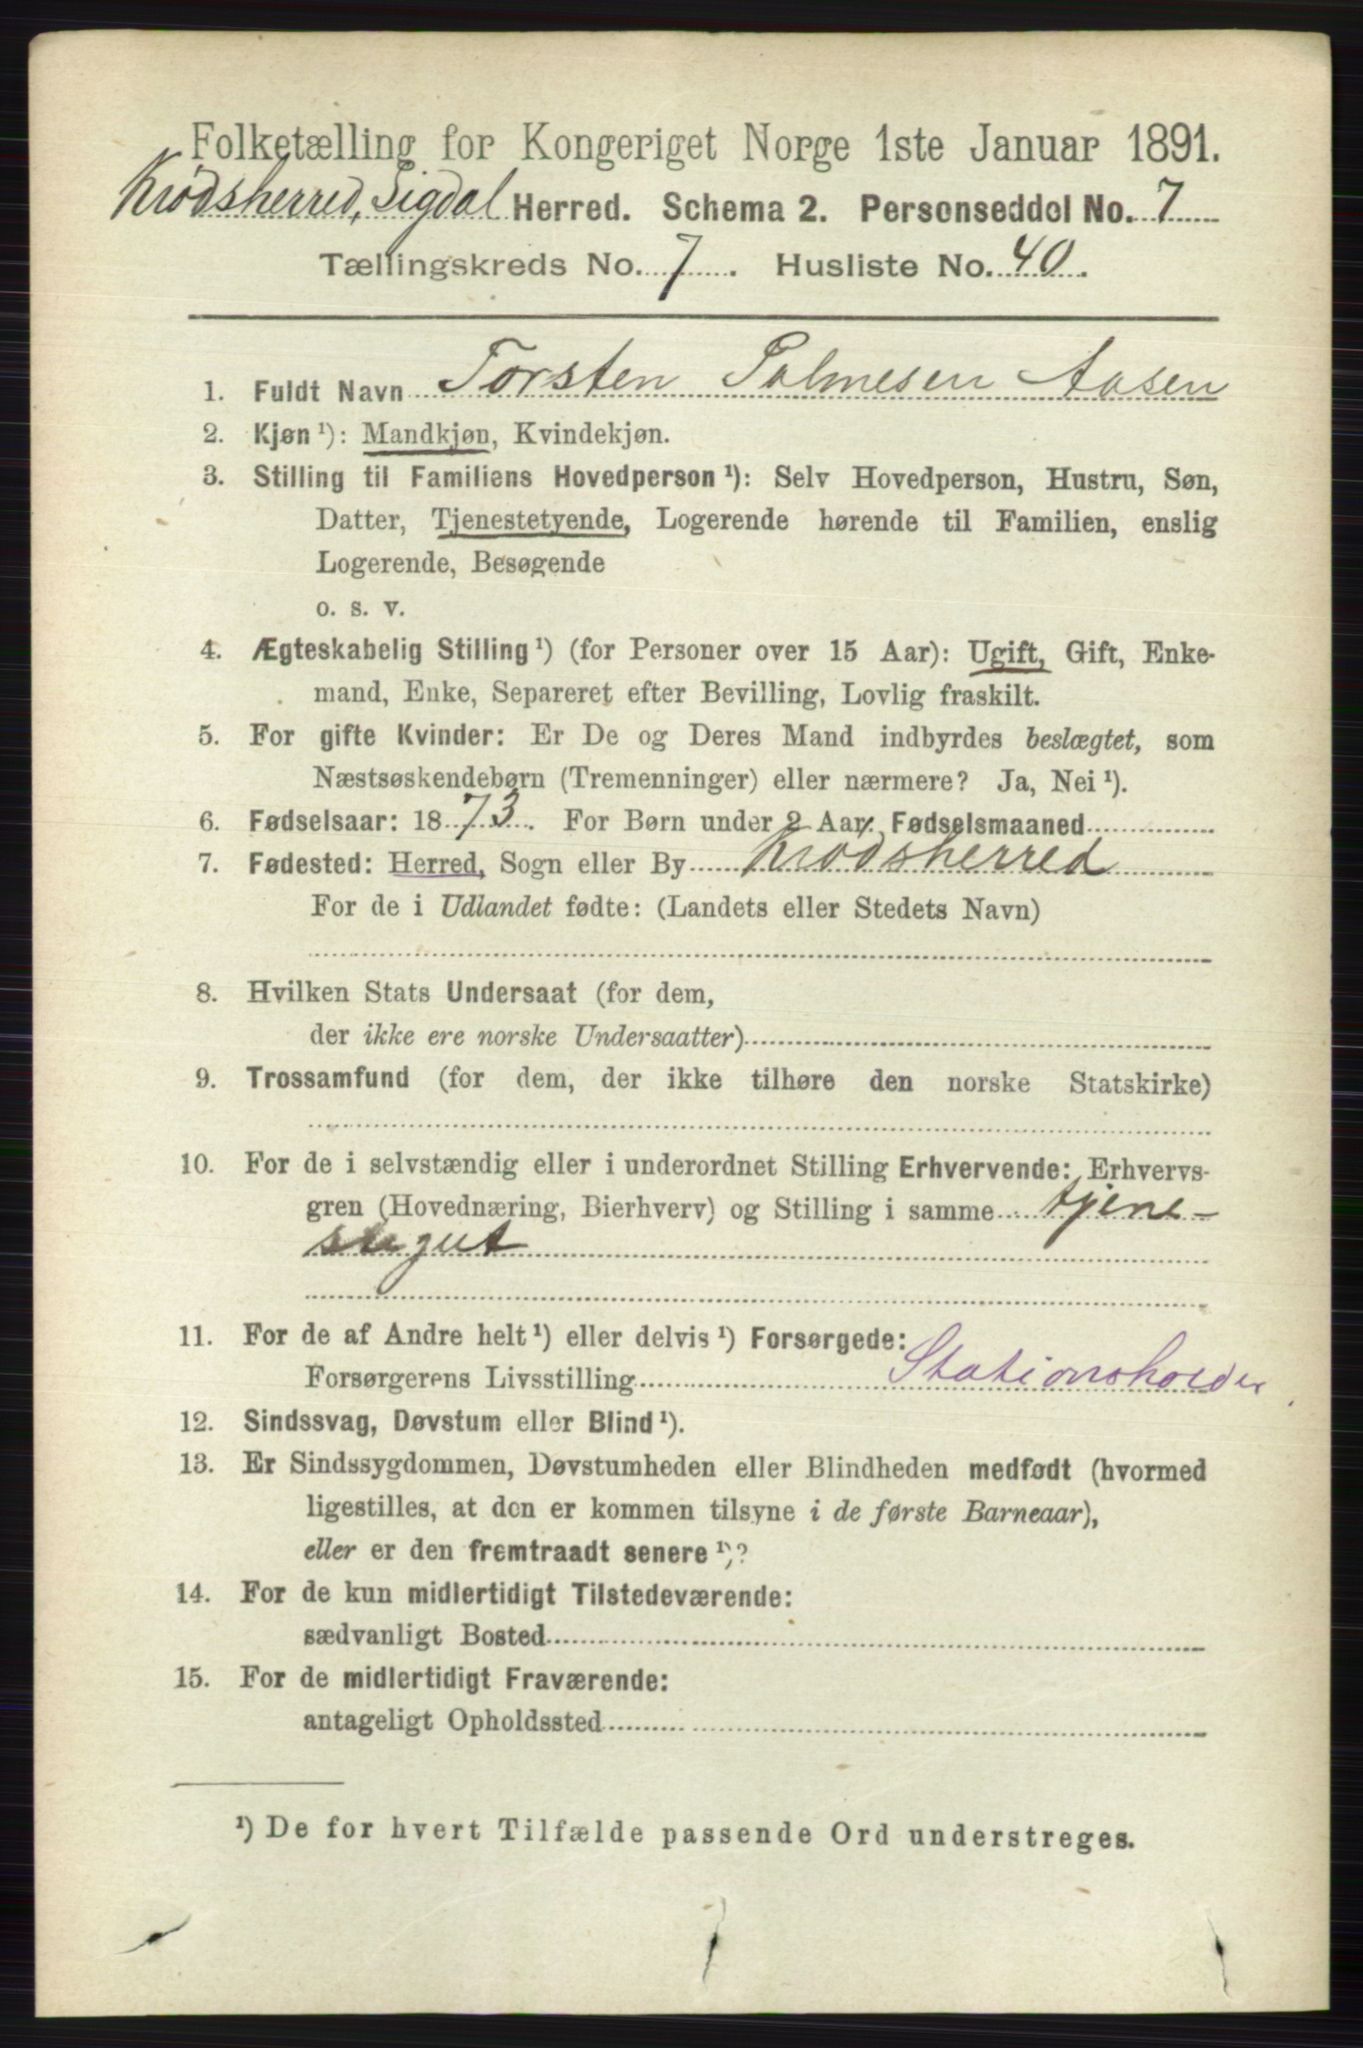 Folketælling for Kongeriget Norge 1ste Januar 1891.
Krødsherred, Sigdal Herred. Schema 2. Personseddel No. 7
Tællingskreds No. 7. Husliste No. 40.
1. Fuldt Navn Torsten Palmesen Aasen
2. Kjøn ¹): Mandkjøn, Kvindekjøn.
3. Stilling til Familiens Hovedperson ¹): Selv Hovedperson, Hustru, Søn,
Datter, Tjenestetyende, Logerende hørende til Familien, enslig
Logerende, Besøgende
o. s. v.
4. Ægteskabelig Stilling ¹) (for Personer over 15 Aar): Ugift, Gift, Enke-
mand, Enke, Separeret efter Bevilling, Lovlig fraskilt.
5. For gifte Kvinder: Er De og Deres Mand indbyrdes beslægtet, som
Næstsøskendebørn (Tremenninger) eller nærmere? Ja, Nei ¹).
6. Fødselsaar: 1873. For Børn under 2 Aar. Fødselsmaaned
7. Fødested: Herred, Sogn eller By Krødsherred
For de i Udlandet fødte: (Landets eller Stedets Navn)
8. Hvilken Stats Undersaat (for dem,
der ikke ere norske Undersaatter)
9. Trossamfund (for dem, der ikke tilhøre den norske Statskirke)
10. For de i selvstændig eller i underordnet Stilling Erhvervende: Erhvervs-
gren (Hovednæring, Bierhverv) og Stilling i samme tjene-
stegut
11. For de af Andre helt ¹) eller delvis ¹) Forsørgede:
Forsørgerens Livsstilling Stationsholder
12. Sindssvag, Døvstum eller Blind ¹).
13. Er Sindssygdommen, Døvstumheden eller Blindheden medfødt (hvormed
ligestilles, at den er kommen tilsyne i de første Barneaar),
eller er den fremtraadt senere ¹)?
14. For de kun midlertidigt Tilstedeværende:
sædvanligt Bosted
15. For de midlertidigt Fraværende:
antageligt Opholdssted
¹) De for hvert Tilfælde passende Ord understreges.